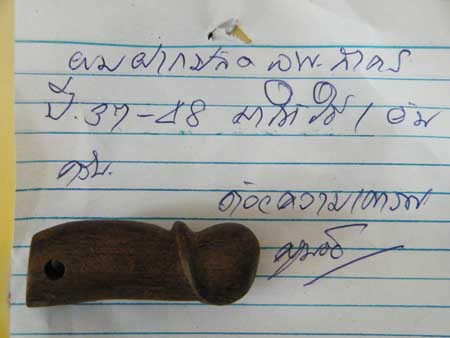 ผมฝากปลัด ลพ. สาคร
ปี. 37-48 มาให้ใช้ 1 อัน
ครับ.
ด้วยความเคารพ